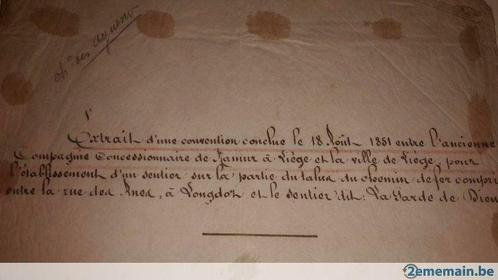 1°
Extrait d'une convention conclue le 18 Août 1851 entre l'ancienne
Compagnie Concessionnaire de Namur à Liège et la ville de Liège, pour
l'établissement d'un sentier sur la partie du talus du chemin de fer compri
entre la rue des Anes, à Longdoz et le sentier dit: La Garde de Dieu
2ememain.be